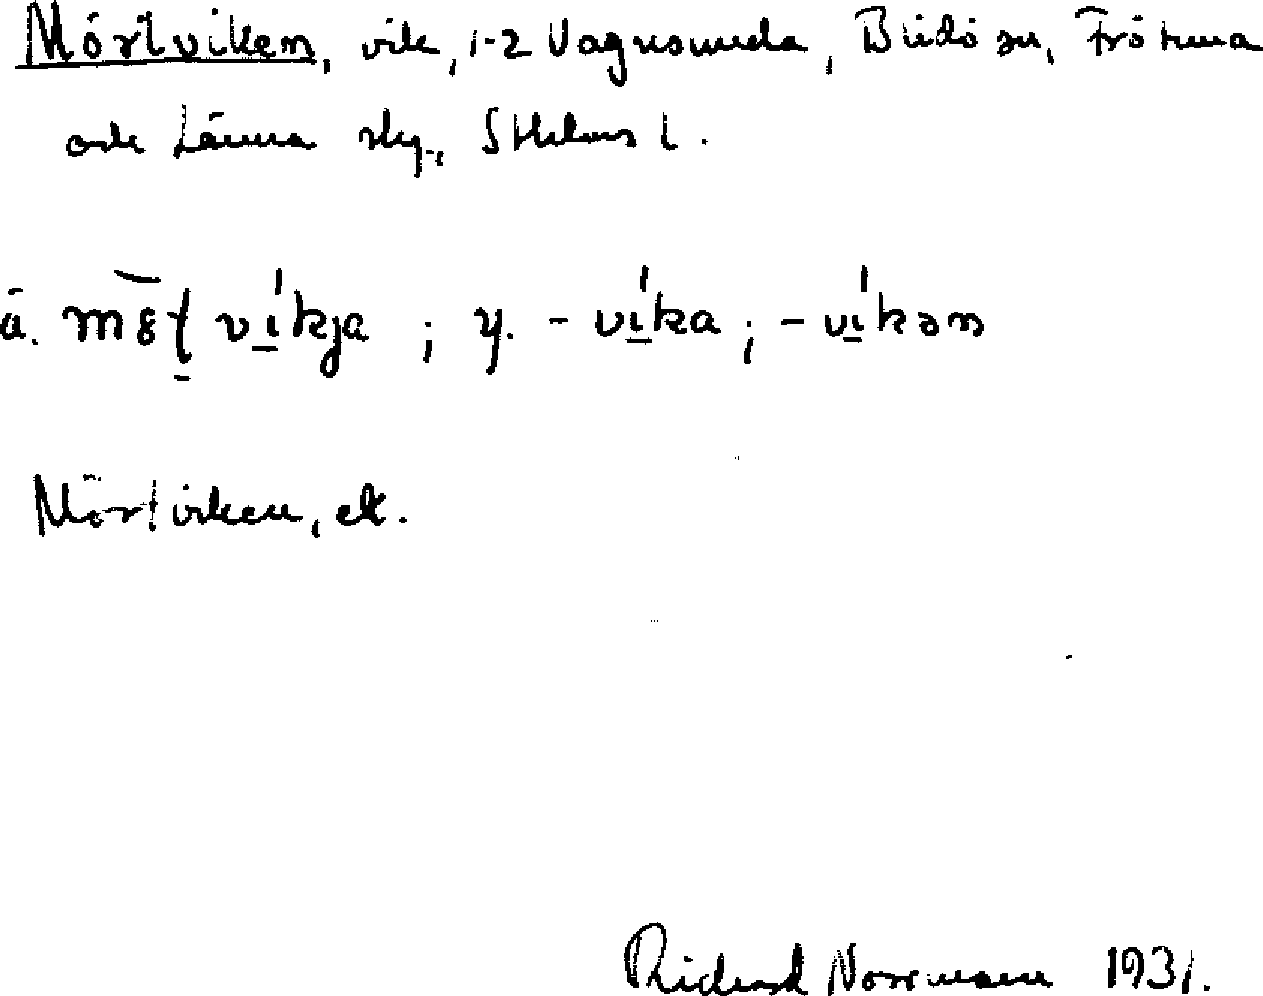 Mörtviken, vik, 1-2 Vagnsunda, Blidö sn, Frötuna
och Länna skg., Sthlms l.
ä. mȫṭ víkja ; y. - víka ; - víkən
Mörtviken, ek.
Richard Norrmann 1931.